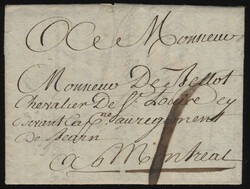 A Monsieur
Monsieur De Bellot
Chevalier De St. Louis Cy
devant Cap ne au regiment
de Bearn
a Montreal